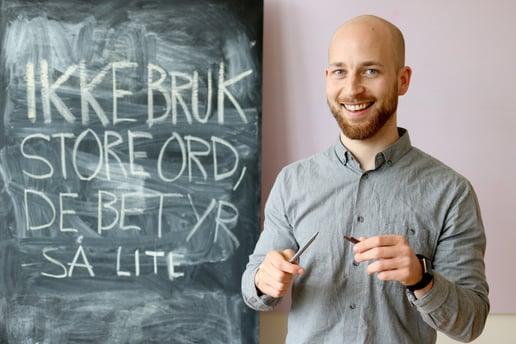 IKKE BRUK
STORE ORD,
DE BETYR
SÅ LITE